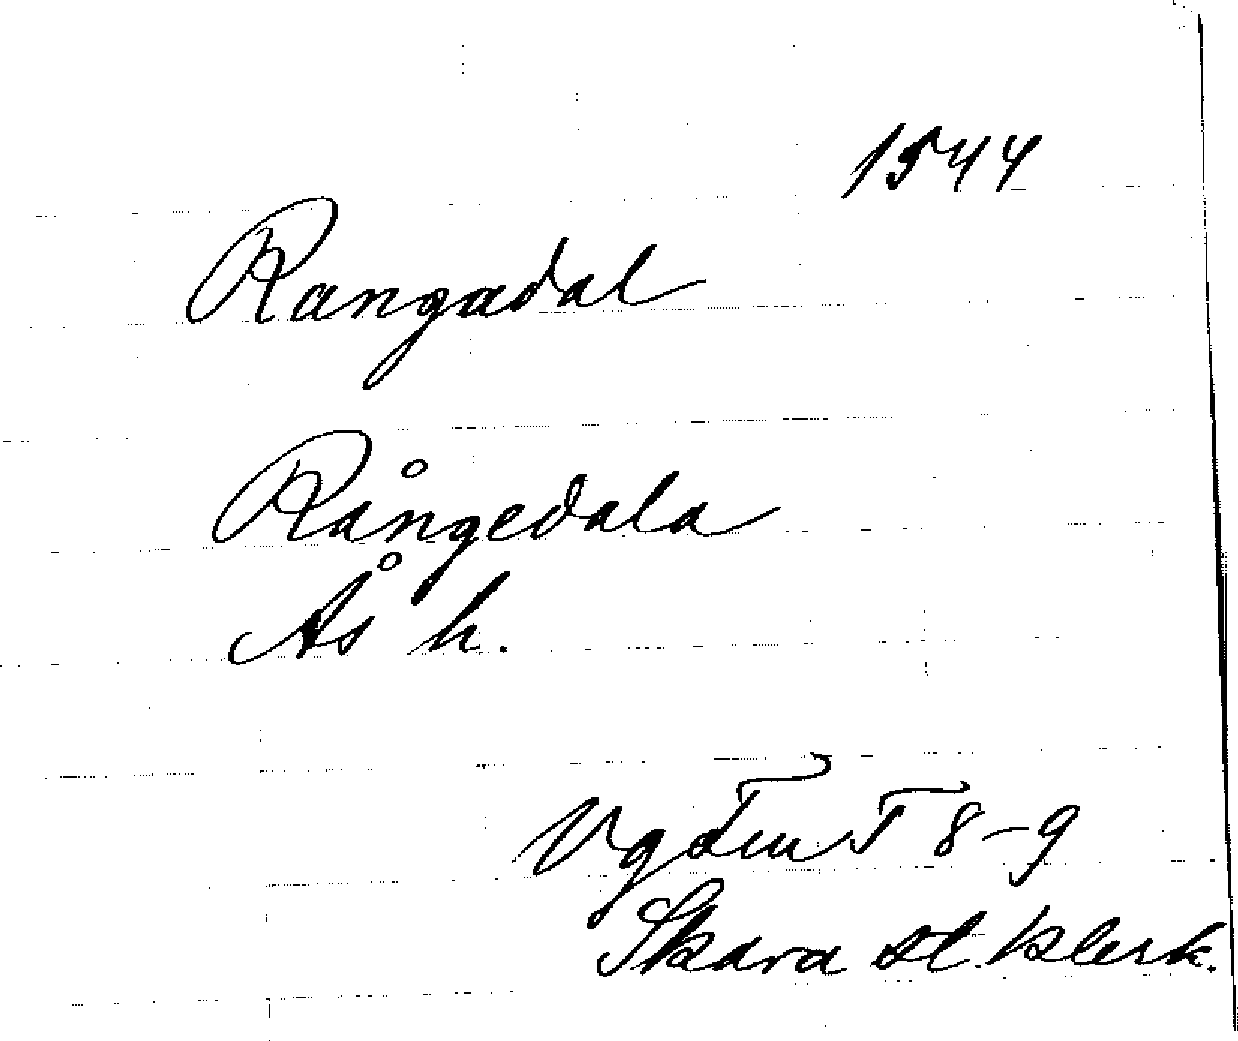 1544
Rangadal
Rångedala
Ås h.
Vg Tiu T 8-9
Skara st. klerk.